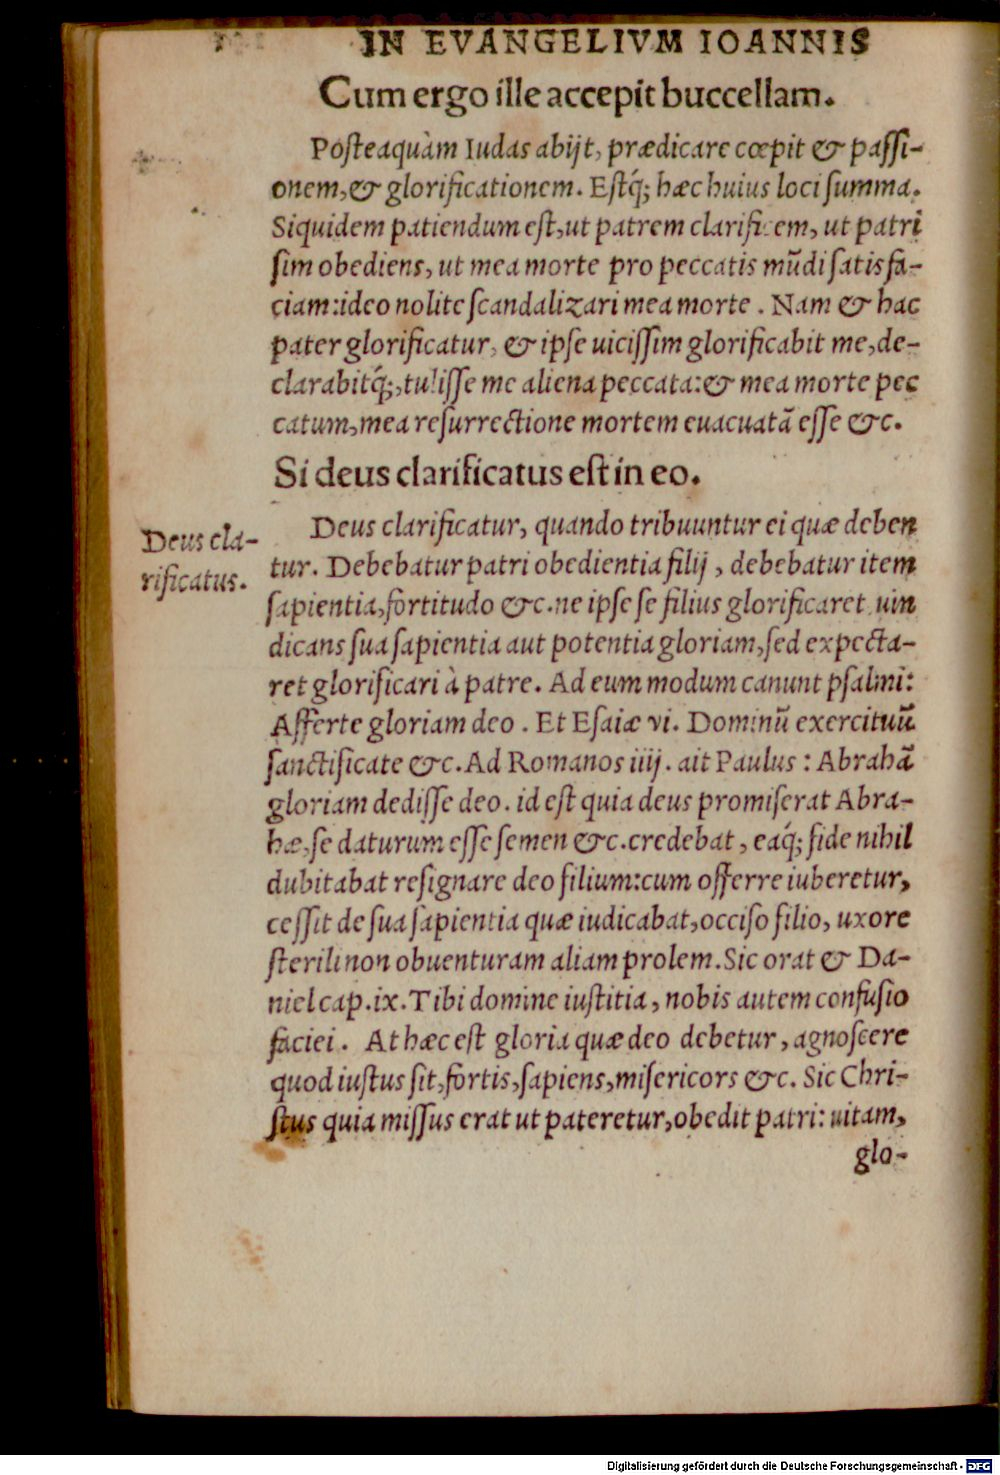 IN EVANGELIVM IOANNIS
Cum ergo ille accepit buccellam.
Posteaquàm Iudas abijt, prædicare cœpit & passi-
onem, & glorificationem. Estq́; hæc huius loci summa.
Siquidem patiendum est, ut patrem clarificem, ut patri
sim obediens, ut mea morte pro peccatis mūdi satisfa-
ciam: ideo nolite scandalizari mea morte. Nam & hac
pater glorificatur, & ipse uicissim glorificabit me, de-
clarabitq́;, tulisse me aliena peccata: & mea morte pec
catum, mea resurrectione mortem euacuatā esse &c.
Si deus clarificatus est in eo.
Deus clarificatur, quando tribuuntur ei quæ deben
tur. Debebatur patri obedientia filij, debebatur item
sapientia, fortitudo &c. ne ipse se filius glorificaret uin
dicans sua sapientia aut potentia gloriam, sed expecta-
ret glorificari à patre. Ad eum modum canunt psalmi:
Afferte gloriam deo. Et Esaiæ vi. Dominū exercituū
sanctificate &c. Ad Romanos iiij. ait Paulus: Abrahā
gloriam dedisse deo. id est quia deus promiserat Abra-
hæ, se daturum esse semen &c. credebat, eaq́; fide nihil
dubitabat resignare deo filium: cum offerre iuberetur,
cessit de sua sapientia quæ iudicabat, occiso filio, uxore
sterili non obuenturam aliam prolem. Sic orat & Da-
niel cap. ix. Tibi domine iustitia, nobis autem confusio
faciei. At hæc est gloria quæ deo debetur, agnoscere
quod iustus sit, fortis, sapiens, misericors &c. Sic Chri-
stus quia missus erat ut pateretur, obedit patri: uitam,
glo-
Deus cla-
rificatus.
Digitalisierung gefördert durch die Deutsche Forschungsgemeinschaft - DFG